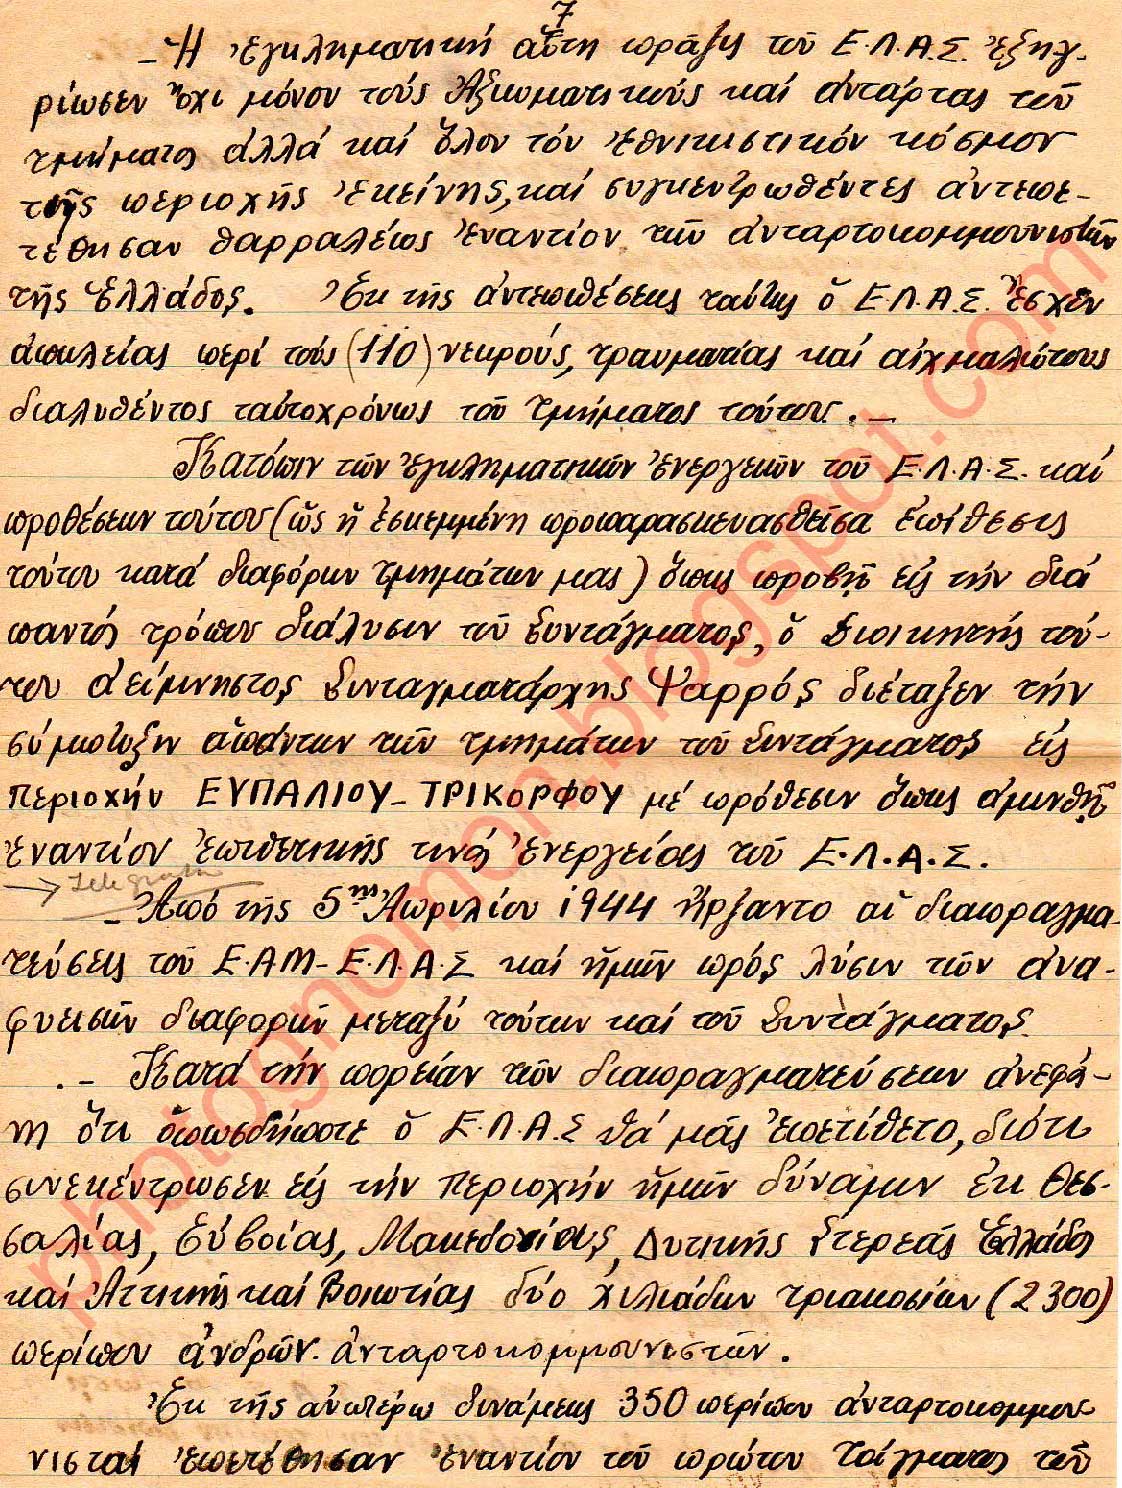 7
- Ἡ ἐγκληματική αὕτη πρᾶξις τοῦ Ε.Λ.Α.Σ. ἐξηγ-
ρίωσεν ὄχι μόνον τούς Ἀξιωματικούς καί ἀντάρτας τοῦ
τμήματος ἀλλά καί ὅλον τόν ἐθνικιστικόν κόσμον
τῆς περιοχῆς ἐκείνης, καί συγκεντρωθέντες ἀντεπε-
τέθησαν θαρραλέως ἐναντίον τῶν ἀνταρτοκομμουνιστῶν
τῆς Ἑλλάδος. Ἐκ τῆς ἀντεπιθέσεως ταύτης ὁ Ε.Λ.Α.Σ. ἔσχεν
ἀπωλείας περί τούς (110) νεκρούς, τραυματίας καί αἰχμαλώτους
διαλυθέντος ταὐτοχρόνως τοῦ τμήματος τούτου. -
Κατόπιν τῶν ἐγκληματικῶν ἐνεργειῶν τοῦ Ε.Λ.Α.Σ. καί
προθέσεων τούτου (ὡς ἡ ἐσκεμμένη προπαρασκευασθεῖσα ἐπίθεσις
τούτου κατά διαφόρων τμημάτων μας) ὅπως προβῇ εἰς τήν διά
παντός τρόπου διάλυσιν τοῦ Συντάγματος, ὁ Διοικητής τού-
του ἀείμνηστος Συνταγματάρχης Ψαρρός διέταξεν τήν
σύμπτυξιν ἁπάντων τῶν τμημάτων τοῦ Συντάγματος εἰς
περιοχήν ΕΥΠΑΛΙΟΥ - ΤΡΙΚΟΡΦΟΥ μέ πρόθεσιν ὅπως ἀμυνθῇ
ἐναντίον ἐπιθετικῆς τινός ἐνεργείας τοῦ Ε.Λ.Α.Σ.
- Ἀπό τῆς 5ης Ἀπριλίου 1944 ἤρξαντο αἱ διαπραγμα-
τεύσεις τοῦ Ε.ΑΜ - Ε.Λ.Α.Σ καί ἡμῶν πρός λύσιν τῶν ἀνα-
φυεισῶν διαφορῶν μεταξύ τούτων καί τοῦ Συντάγματος.
. - Κατά τήν πορείαν τῶν διαπραγματεύσεων ἀνεφά-
νη ὅτι ὁπωσδήποτε ὁ Ε.Λ.Α.Σ θά μᾶς ἐπετίθετο, διότι
συνεκέντρωσεν εἰς τήν περιοχήν ἡμῶν δύναμιν ἐκ Θεσ-
σαλίας, Εὐβοίας, Μακεδονίας, Δυτικῆς Στερεᾶς Ἑλλάδος
καί Ἀττικῆς καί Βοιωτίας δύο χιλιάδων τριακοσίων (2300)
περίπου ἀνδρῶν ἀνταρτοκομμουνιστῶν.
Ἐκ τῆς ἀνωτέρω δυνάμεως 350 περίπου ἀνταρτοκομμου-
νισταί ἐπετέθησαν ἐναντίον τοῦ πρώτου Τάγματος τοῦ
photognomon.blogspot.com